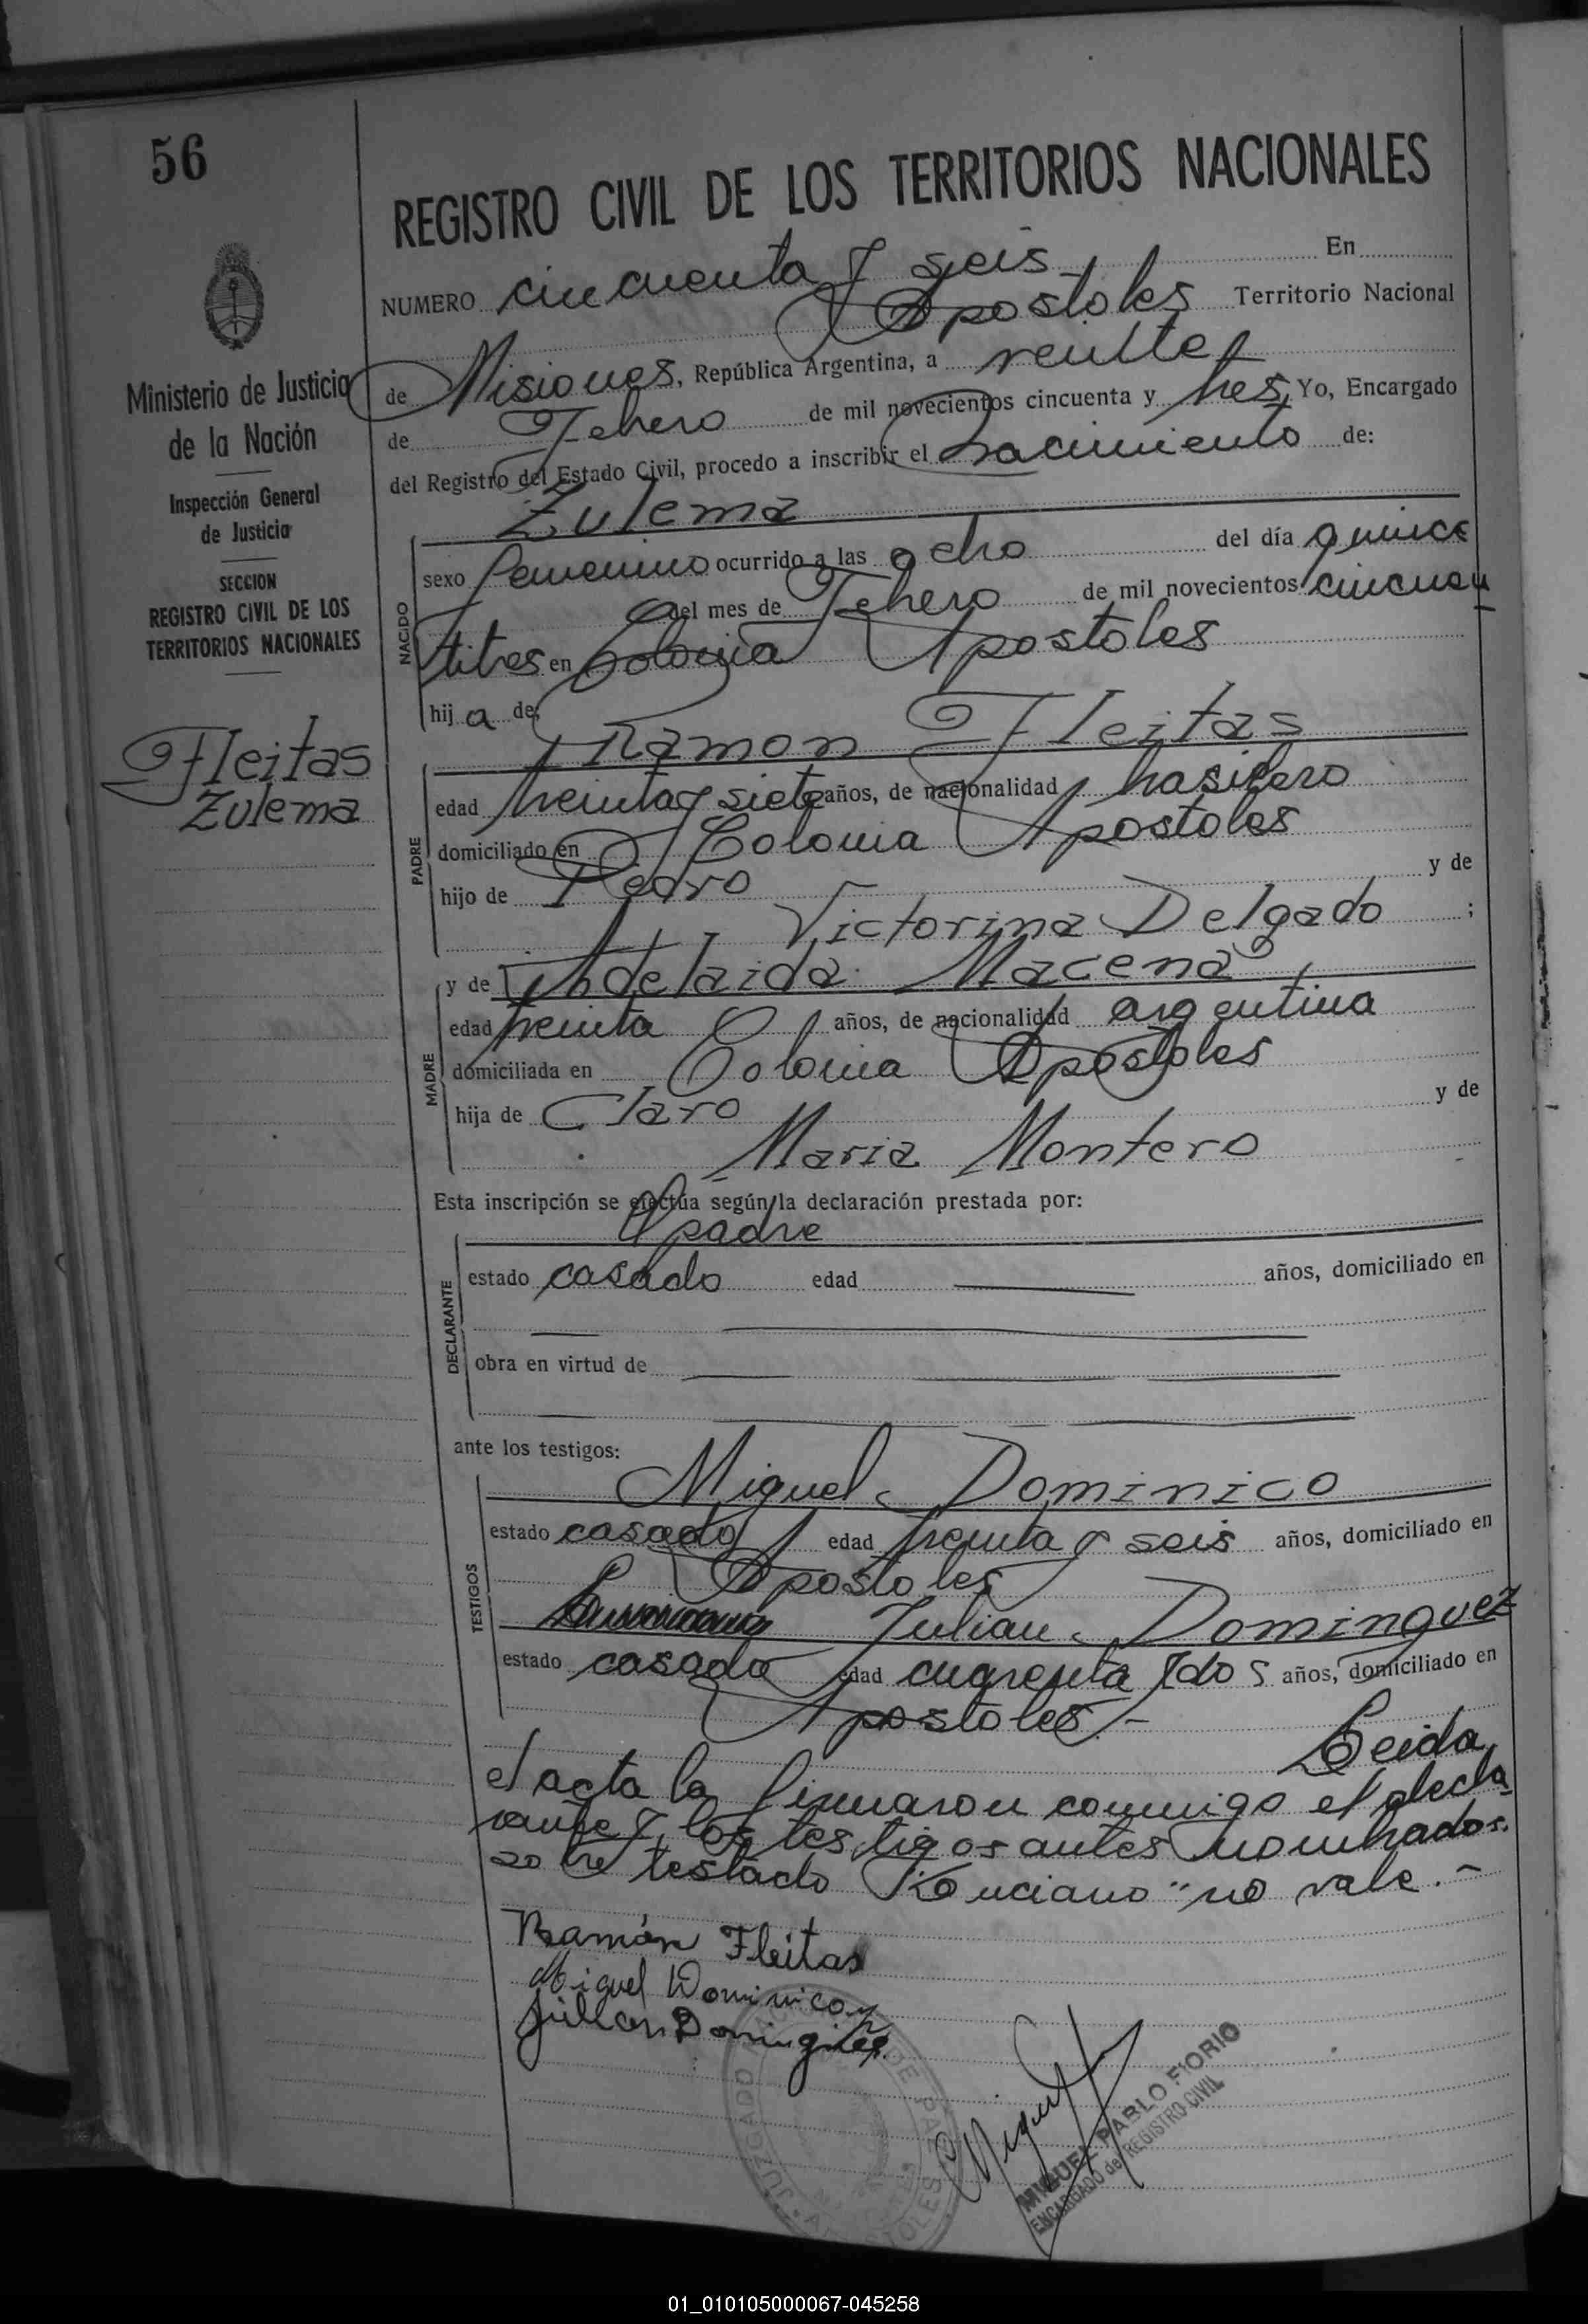 56
REGISTRO CIVIL DE LOS TERRITORIOS NACIONALES
Ministerio de Justicia
de la Nación
Inspección General
de Justicia
SECCION
REGISTRO CIVIL DE LOS
TERRITORIOS NACIONALES
Fleitas
Zulema
NUMERO cincuenta y seis En
Apostoles Territorio Nacional
de Misiones, República Argentina, a veinte
de Febrero de mil novecientos cincuenta y tres, Yo, Encargado
del Registro del Estado Civil, procedo a inscribir el nacimiento de:
Zulema
NACIDO
sexo femenino ocurrido a las ocho del día quince
del mes de Febrero de mil novecientos cincuen
titres en Colonia Apostoles
hij a de:
Ramon Fleitas
PADRE
edad treinta y siete años, de nacionalidad brasilero
domiciliado en Colonia Apostoles
hijo de Pedro y de
Victorina Delgado ;
y de Adelaida Macena
MADRE
edad treinta años, de nacionalidad argentina
domiciliada en Colonia Apostoles
hija de Claro y de
Maria Montero
Esta inscripción se efectúa según la declaración prestada por:
El padre
DECLARANTE
estado casado edad años, domiciliado en
obra en virtud de
ante los testigos:
Miguel Dominico
TESTIGOS
estado casado edad treinta y seis años, domiciliado en
Apostoles
Julian Dominguez
estado casado edad cuarenta y dos años, domiciliado en
Apostoles.-
Leida
el acta la firmaron conmigo el decla-
rante y los testigos antes nombrados.
sobre testado "Luciano" no vale.-
Ramón Fleitas
Miguel Dominico
Julian Dominguez
MIGUEL PABLO FIORIO
ENCARGADO del REGISTRO CIVIL
JUZGADO DE PAZ
01_010105000067-045258